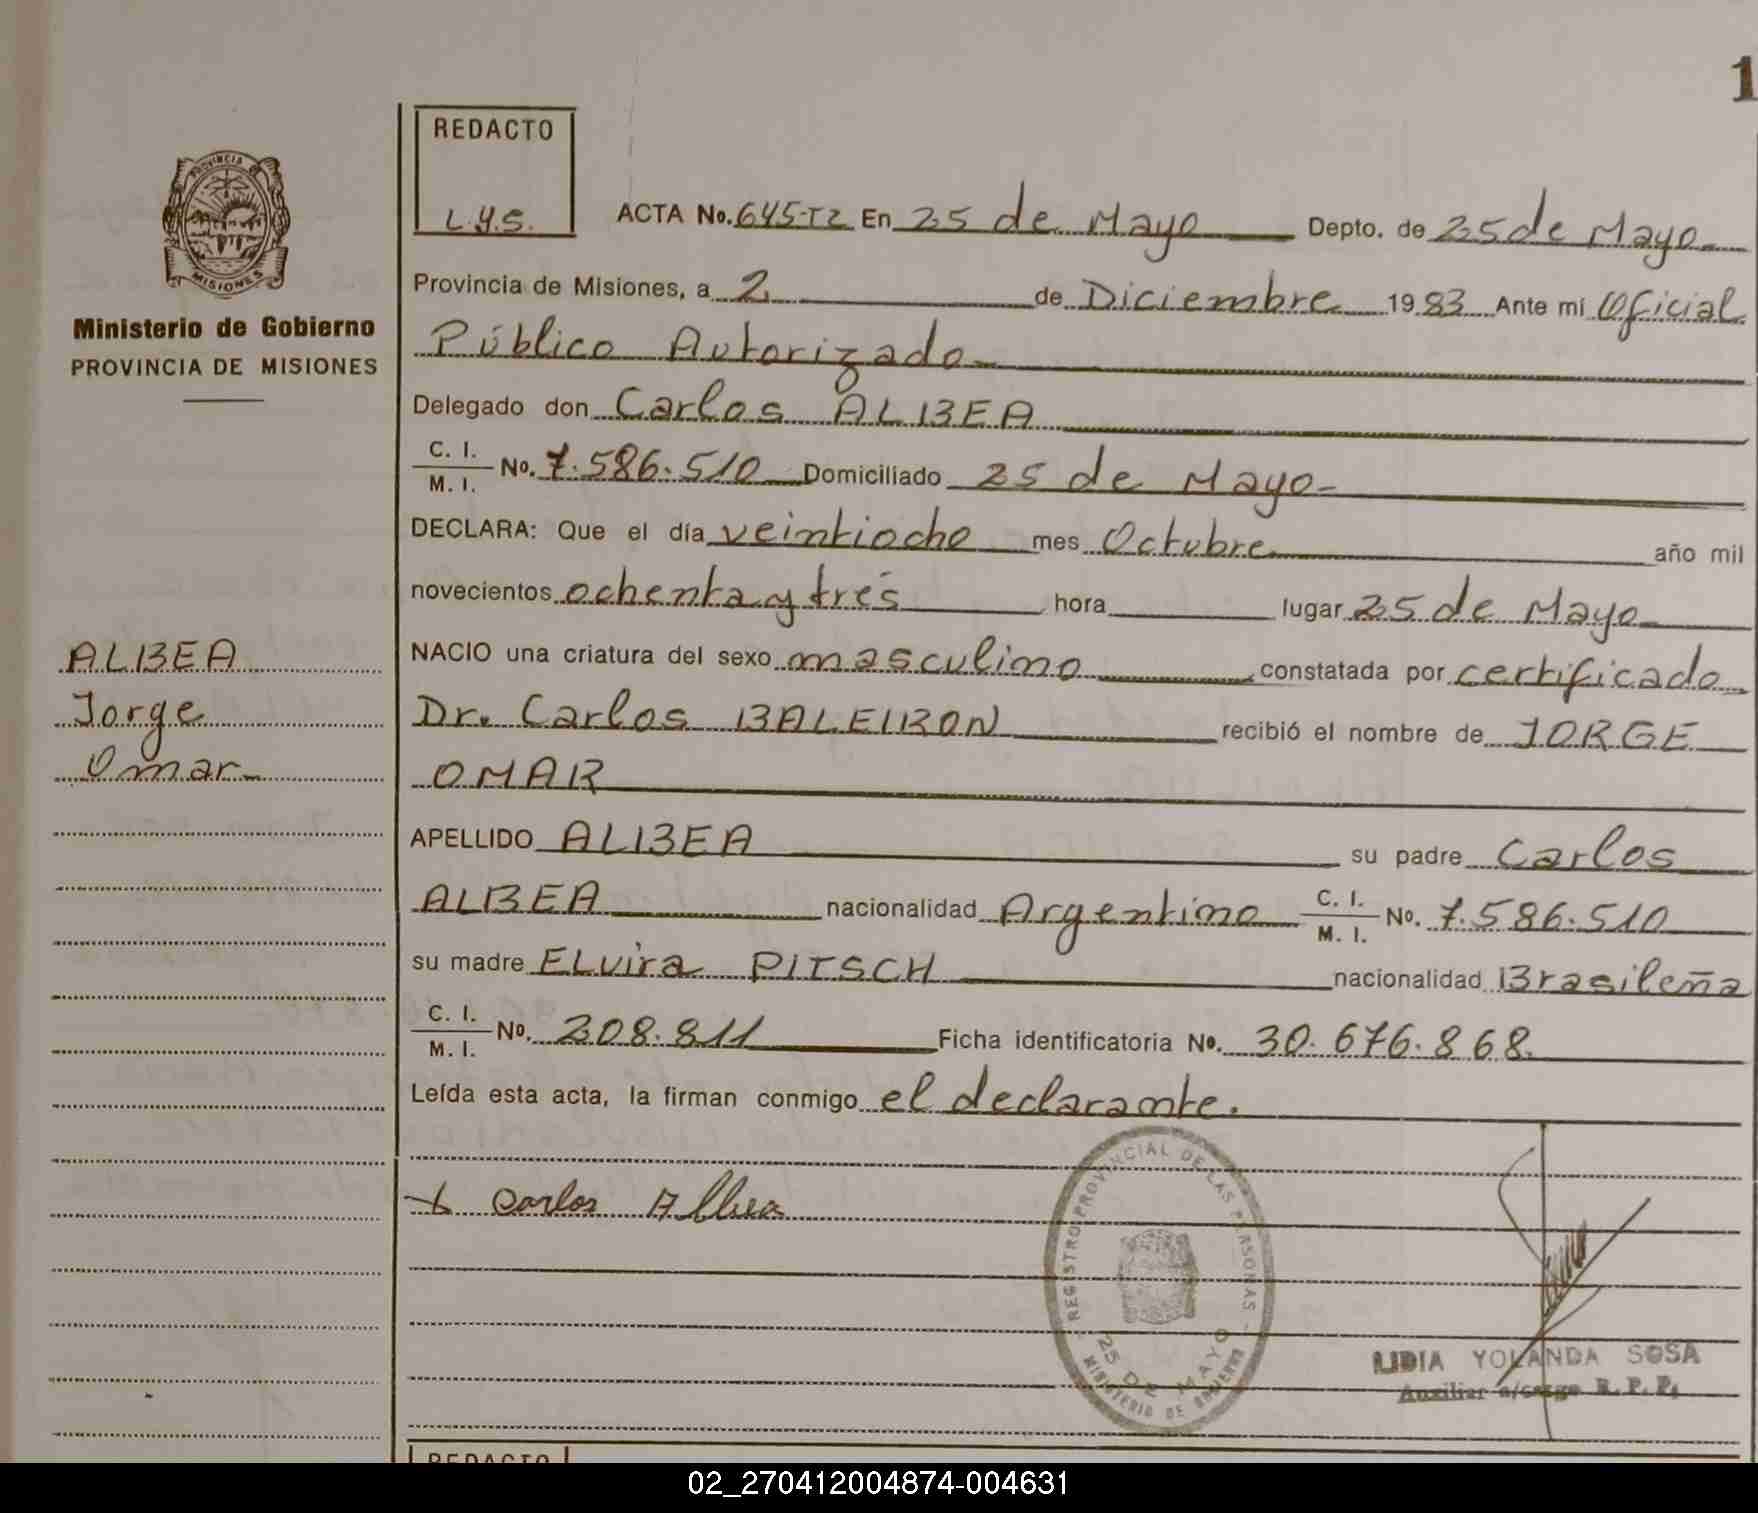 1
REDACTO
L.Y.S.
PROVINCIA
MISIONES
Ministerio de Gobierno
PROVINCIA DE MISIONES
ACTA No. 645-T2 En 25 de Mayo Depto. de 25 de Mayo
Provincia de Misiones, a 2 de Diciembre 1983 Ante mí Oficial
Público Autorizado
Delegado don Carlos ALBEA
C. I.
M. I. No. 7.586.510 Domiciliado 25 de Mayo-
DECLARA: Que el día veintiocho mes Octubre año mil
novecientos ochenta y tres hora lugar 25 de Mayo
NACIO una criatura del sexo masculino constatada por certificado
Dr. Carlos BALEIRON recibió el nombre de JORGE
OMAR
APELLIDO ALBEA su padre Carlos
ALBEA nacionalidad Argentino C. I. M. I. No. 7.586.510
su madre ELvira PITSCH nacionalidad Brasileña
C. I.
M. I. No. 208.811 Ficha identificatoria No. 30.676.868.
Leída esta acta, la firman conmigo el declarante.
ALBEA
Jorge
Omar
x Carlos Albea
REGISTRO PROVINCIAL DE LAS PERSONAS
25 DE MAYO
MINISTERIO DE GOBIERNO
LIDIA YOLANDA SOSA
Auxiliar a/cargo R. P. P.
REDACTO
02_270412004874-004631